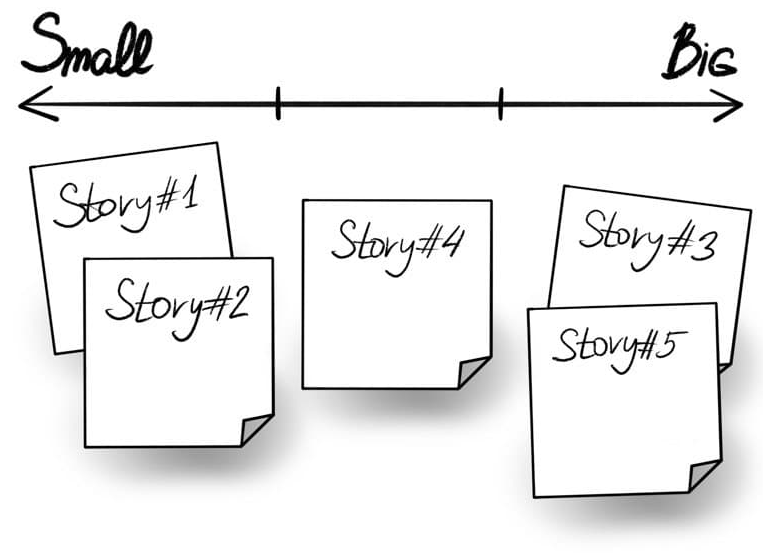 Small
Big
Story#1
Story#2
Story#4
Story#3
Story#5